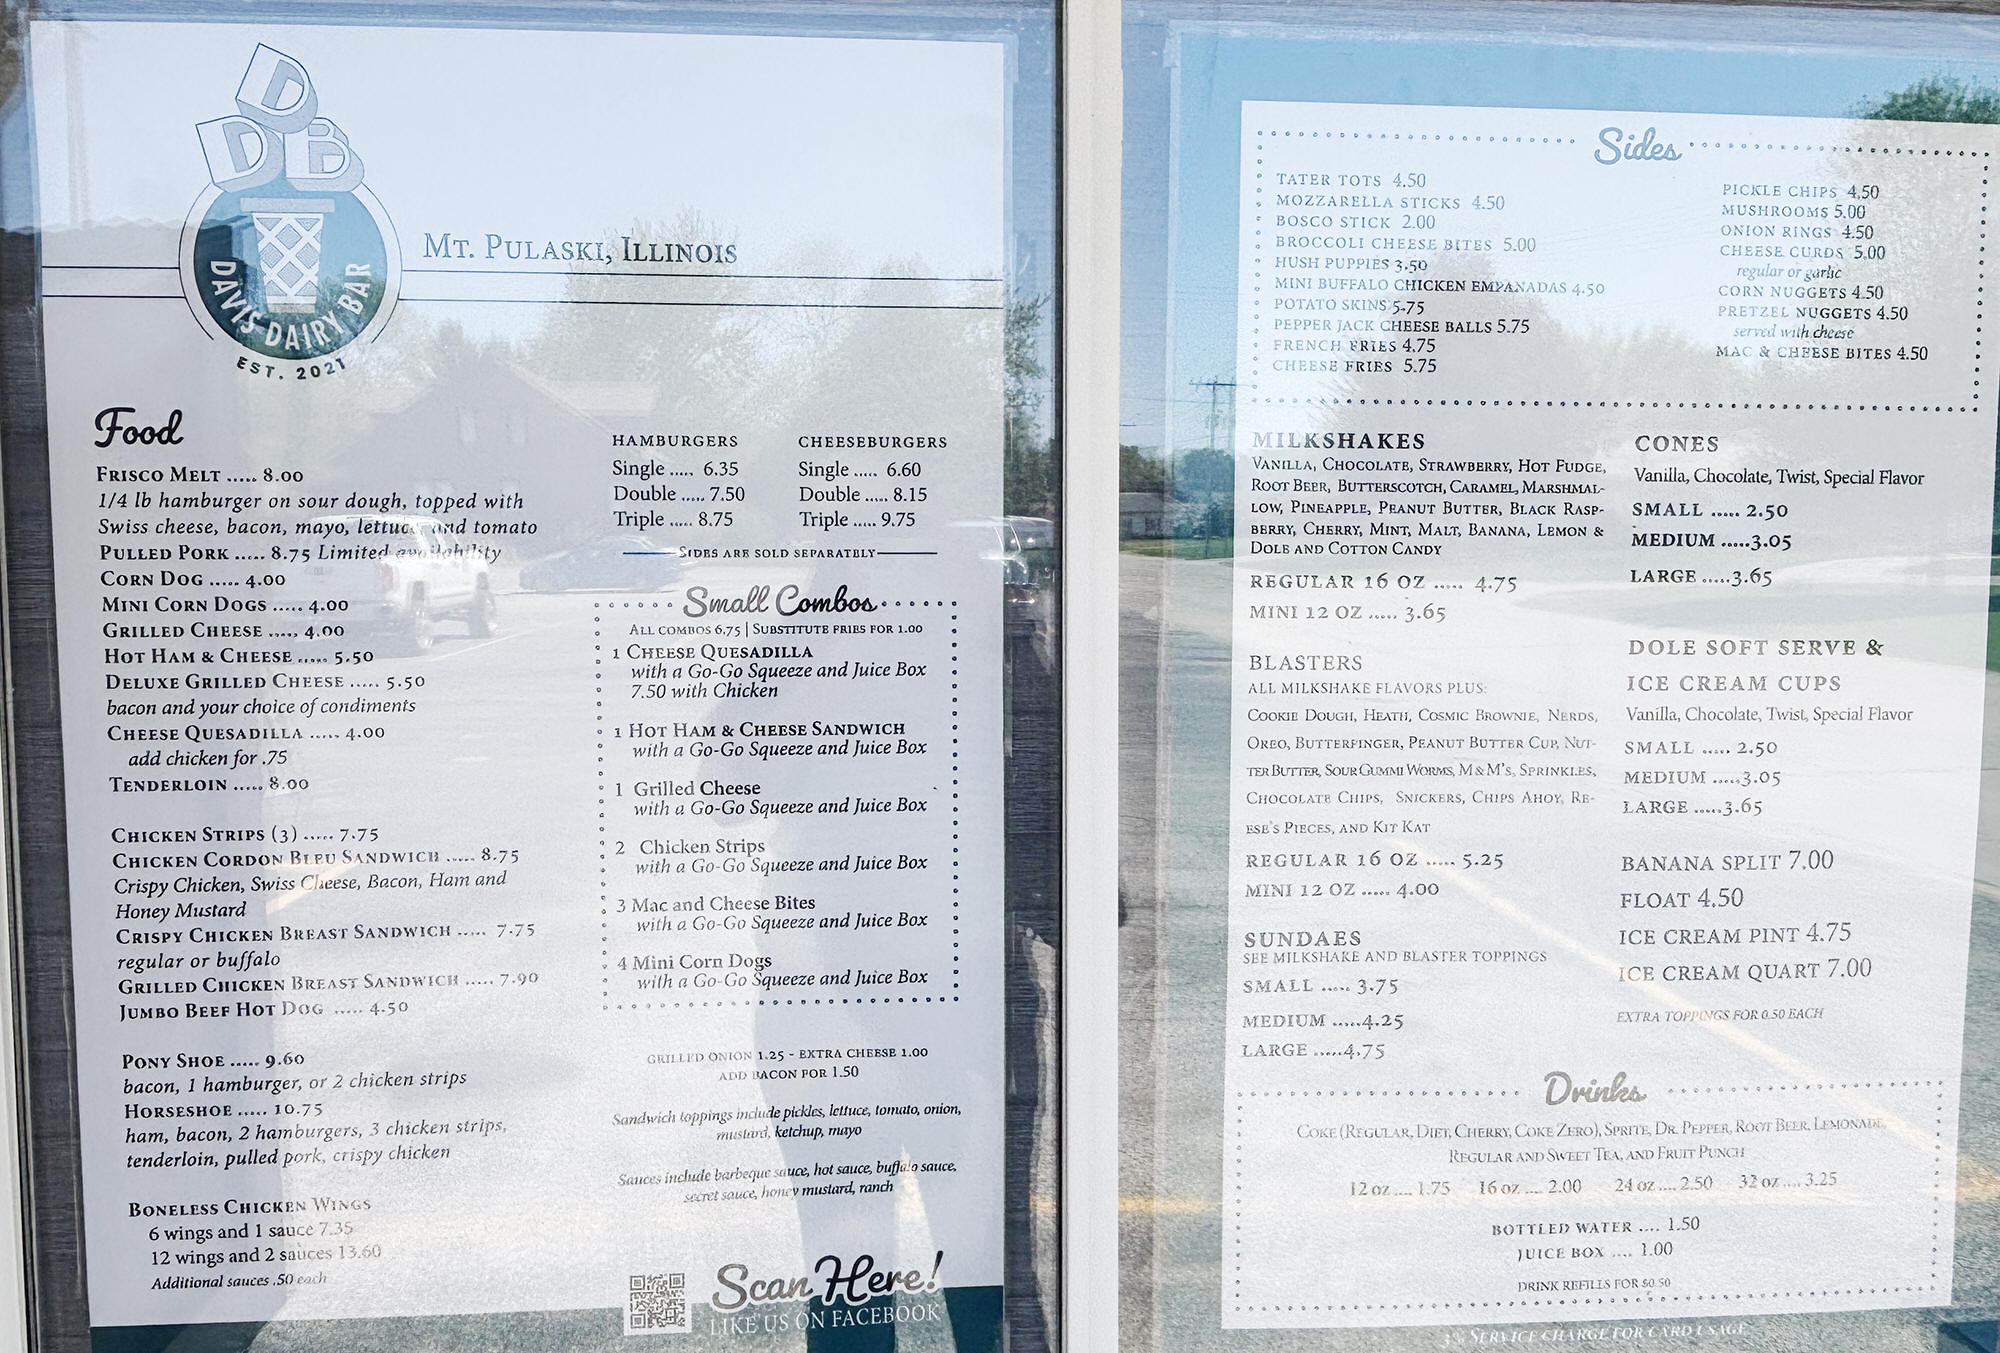 D
D B
DAVIS DAIRY BAR
EST. 2021
Mt. Pulaski, Illinois
Food
Frisco Melt ..... 8.00
1/4 lb hamburger on sour dough, topped with
Swiss cheese, bacon, mayo, lettuce and tomato
Pulled Pork ..... 8.75 Limited availability
Corn Dog ..... 4.00
Mini Corn Dogs ..... 4.00
Grilled Cheese ..... 4.00
Hot Ham & Cheese ..... 5.50
Deluxe Grilled Cheese ..... 5.50
bacon and your choice of condiments
Cheese Quesadilla ..... 4.00
add chicken for .75
Tenderloin ..... 8.00
Chicken Strips (3) ..... 7.75
Chicken Cordon Bleu Sandwich ..... 8.75
Crispy Chicken, Swiss Cheese, Bacon, Ham and
Honey Mustard
Crispy Chicken Breast Sandwich ..... 7.75
regular or buffalo
Grilled Chicken Breast Sandwich ..... 7.90
Jumbo Beef Hot Dog ..... 4.50
Pony Shoe ..... 9.60
bacon, 1 hamburger, or 2 chicken strips
Horseshoe ..... 10.75
ham, bacon, 2 hamburgers, 3 chicken strips,
tenderloin, pulled pork, crispy chicken
Boneless Chicken Wings
6 wings and 1 sauce 7.35
12 wings and 2 sauces 13.60
Additional sauces .50 each
HAMBURGERS
Single ..... 6.35
Double ..... 7.50
Triple ..... 8.75
CHEESEBURGERS
Single ..... 6.60
Double ..... 8.15
Triple ..... 9.75
Sides are sold separately
Small Combos
All combos 6.75 | Substitute fries for 1.00
1 Cheese Quesadilla
with a Go-Go Squeeze and Juice Box
7.50 with Chicken
1 Hot Ham & Cheese Sandwich
with a Go-Go Squeeze and Juice Box
1 Grilled Cheese
with a Go-Go Squeeze and Juice Box
2 Chicken Strips
with a Go-Go Squeeze and Juice Box
3 Mac and Cheese Bites
with a Go-Go Squeeze and Juice Box
4 Mini Corn Dogs
with a Go-Go Squeeze and Juice Box
GRILLED ONION 1.25 - EXTRA CHEESE 1.00
ADD BACON FOR 1.50
Sandwich toppings include pickles, lettuce, tomato, onion,
mustard, ketchup, mayo
Sauces include barbeque sauce, hot sauce, buffalo sauce,
secret sauce, honey mustard, ranch
Scan Here!
LIKE US ON FACEBOOK
Sides
TATER TOTS 4.50
MOZZARELLA STICKS 4.50
BOSCO STICK 2.00
BROCCOLI CHEESE BITES 5.00
HUSH PUPPIES 3.50
MINI BUFFALO CHICKEN EMPANADAS 4.50
POTATO SKINS 5.75
PEPPER JACK CHEESE BALLS 5.75
FRENCH FRIES 4.75
CHEESE FRIES 5.75
PICKLE CHIPS 4.50
MUSHROOMS 5.00
ONION RINGS 4.50
CHEESE CURDS 5.00
regular or garlic
CORN NUGGETS 4.50
PRETZEL NUGGETS 4.50
served with cheese
MAC & CHEESE BITES 4.50
MILKSHAKES
Vanilla, Chocolate, Strawberry, Hot Fudge,
Root Beer, Butterscotch, Caramel, Marshmal-
low, Pineapple, Peanut Butter, Black Rasp-
berry, Cherry, Mint, Malt, Banana, Lemon &
Dole and Cotton Candy
REGULAR 16 OZ ..... 4.75
MINI 12 OZ ..... 3.65
BLASTERS
ALL MILKSHAKE FLAVORS PLUS:
Cookie Dough, Heath, Cosmic Brownie, Nerds,
Oreo, Butterfinger, Peanut Butter Cup, Nut-
ter Butter, Sour Gummi Worms, M&M's, Sprinkles,
Chocolate Chips, Snickers, Chips Ahoy, Re-
ese's Pieces, and Kit Kat
REGULAR 16 OZ ..... 5.25
MINI 12 OZ ..... 4.00
SUNDAES
SEE MILKSHAKE AND BLASTER TOPPINGS
SMALL ..... 3.75
MEDIUM .....4.25
LARGE .....4.75
CONES
Vanilla, Chocolate, Twist, Special Flavor
SMALL ..... 2.50
MEDIUM .....3.05
LARGE .....3.65
DOLE SOFT SERVE &
ICE CREAM CUPS
Vanilla, Chocolate, Twist, Special Flavor
SMALL ..... 2.50
MEDIUM .....3.05
LARGE .....3.65
BANANA SPLIT 7.00
FLOAT 4.50
ICE CREAM PINT 4.75
ICE CREAM QUART 7.00
EXTRA TOPPINGS FOR 0.50 EACH
Drinks
Coke (Regular, Diet, Cherry, Coke Zero), Sprite, Dr. Pepper, Root Beer, Lemonade,
Regular and Sweet Tea, and Fruit Punch
12 oz .... 1.75 16 oz .... 2.00 24 oz .... 2.50 32 oz .... 3.25
BOTTLED WATER .... 1.50
JUICE BOX .... 1.00
DRINK REFILLS FOR $0.50
3% Service charge for card usage